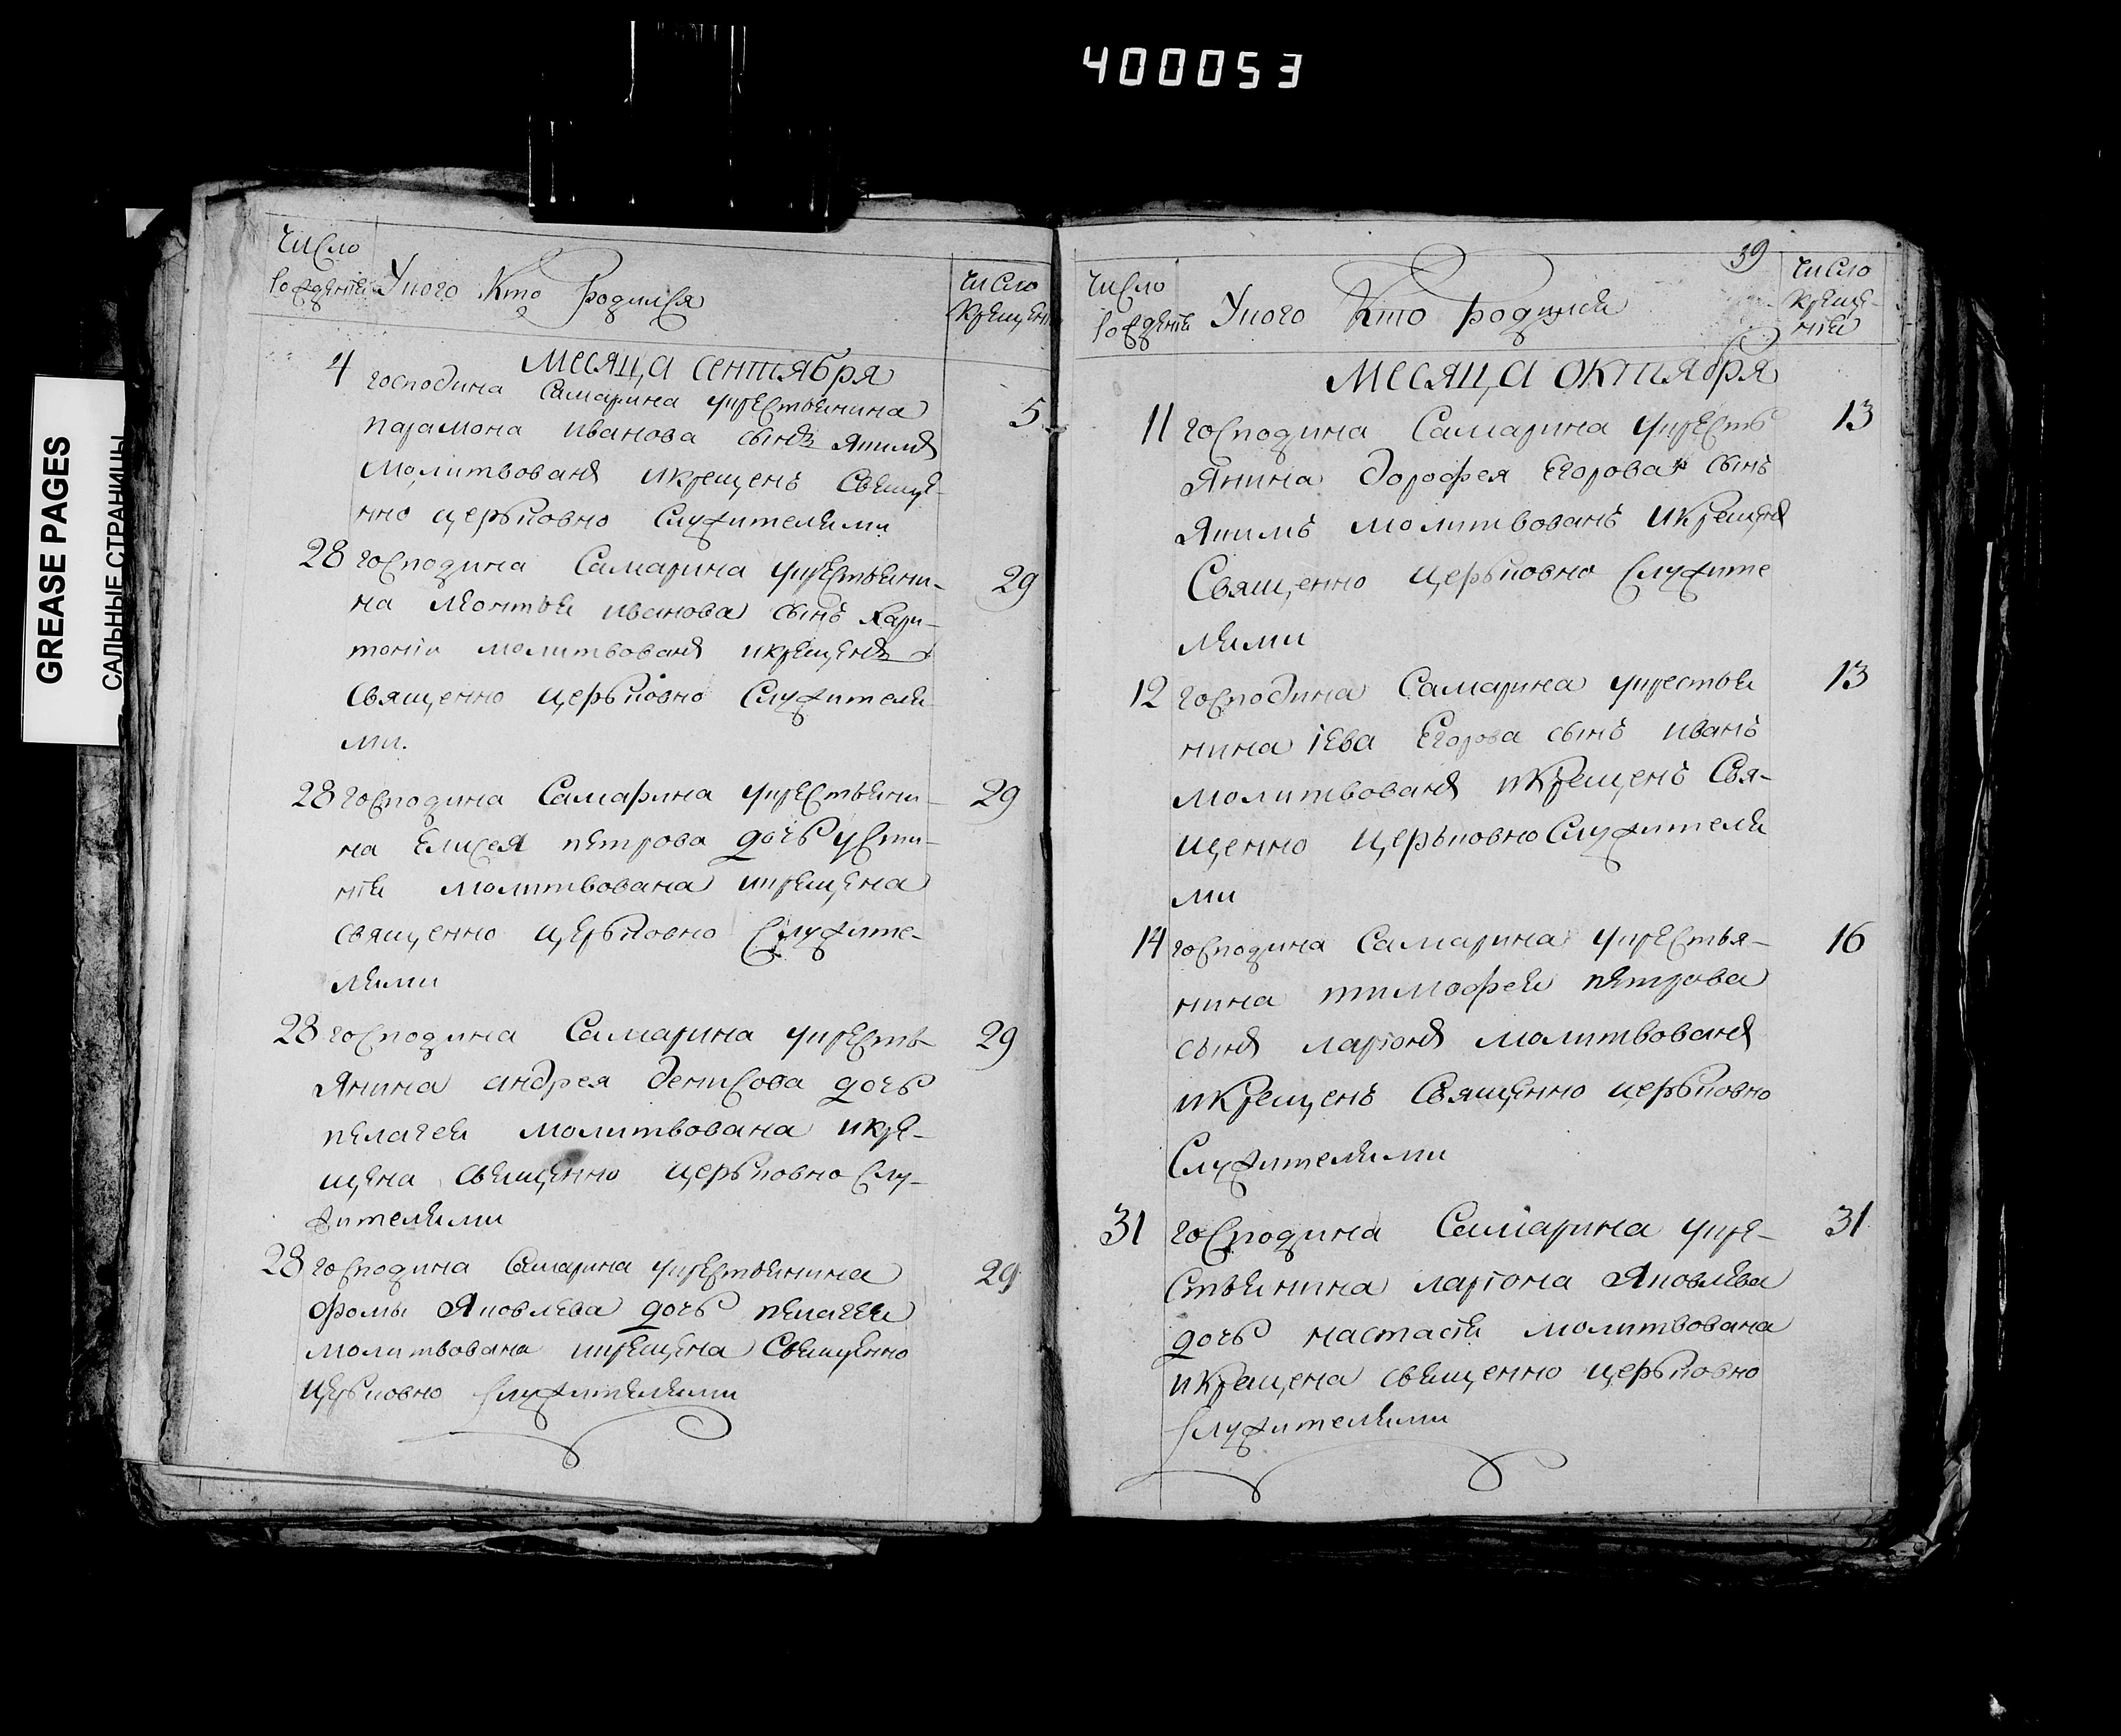 400053
GREASE PAGES
САЛЬНЫЕ СТРАНИЦЫ
Число
рождения
У кого Кто родился
число
крещен
Месяца сентября
4
господина Самарина укрестьянина
5
парамона иванова сынъ Якимъ
молитвованъ икрещенъ Свяще-
нно церьковно служителями
28
господина Самарина укрестьяни-
29
на леонтья иванова сынъ Хари-
тоніи молитвованъ икрещенъ
священно церьковно служителя
ми.
28
господина Самарина укрестьяни-
29
на Елисея петрова дочь усти-
нія молитвована икрещена
священно церьковно служите-
лями
28
господина Самарина укресть
29
янина андрея денисова дочь
пелагея молитвована икре-
щена священно церьковно слу-
жителями
28
господина Самарина укрестьянина
29
фомы Яковлева дочь пелагея
молитвована икрещена священно
церьковно служителями
39
Число
рожденія
У кого Кто родился
число
креще-
нія
Месяца октября
11
господина Самарина укресть
13
янина дорофея Егорова сынъ
Якимъ молитвованъ икрещенъ
Священно церьковно служите
лями
12
господина Самарина укрестья
13
нина іева Егорова сынъ иванъ
молитвованъ икрещенъ Свя-
щенно церьковно служителя
ми
14
господина Самарина укрестья-
16
нина тимофея петрова
сынъ ларіонъ молитвованъ
икрещенъ Священно церьковно
служителями
31
господина Самарина укре-
31
стьянина ларіона Яковлева
дочь настасія молитвована
икрещена священно церьковно
служителями